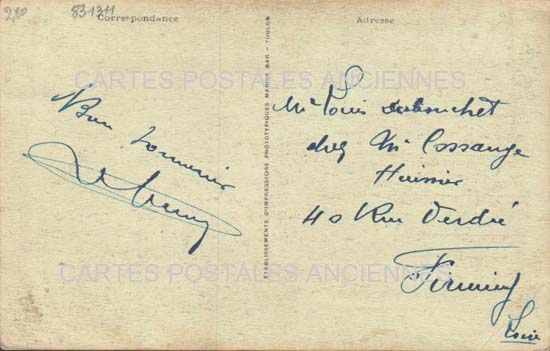 2,90
83-1311
Correspondance
Adresse
CARTES POSTALES ANCIENNES
Bon souvenir
ETABLISSEMENTS D'IMPRESSIONS PHOTOTYPIQUES MARIUS BAR - TOULON
Mr Louis
chez Mr Cossange
Huissier
40 Rue Verdié
Firminy
Loire
CARTES POSTALES ANCIENNES